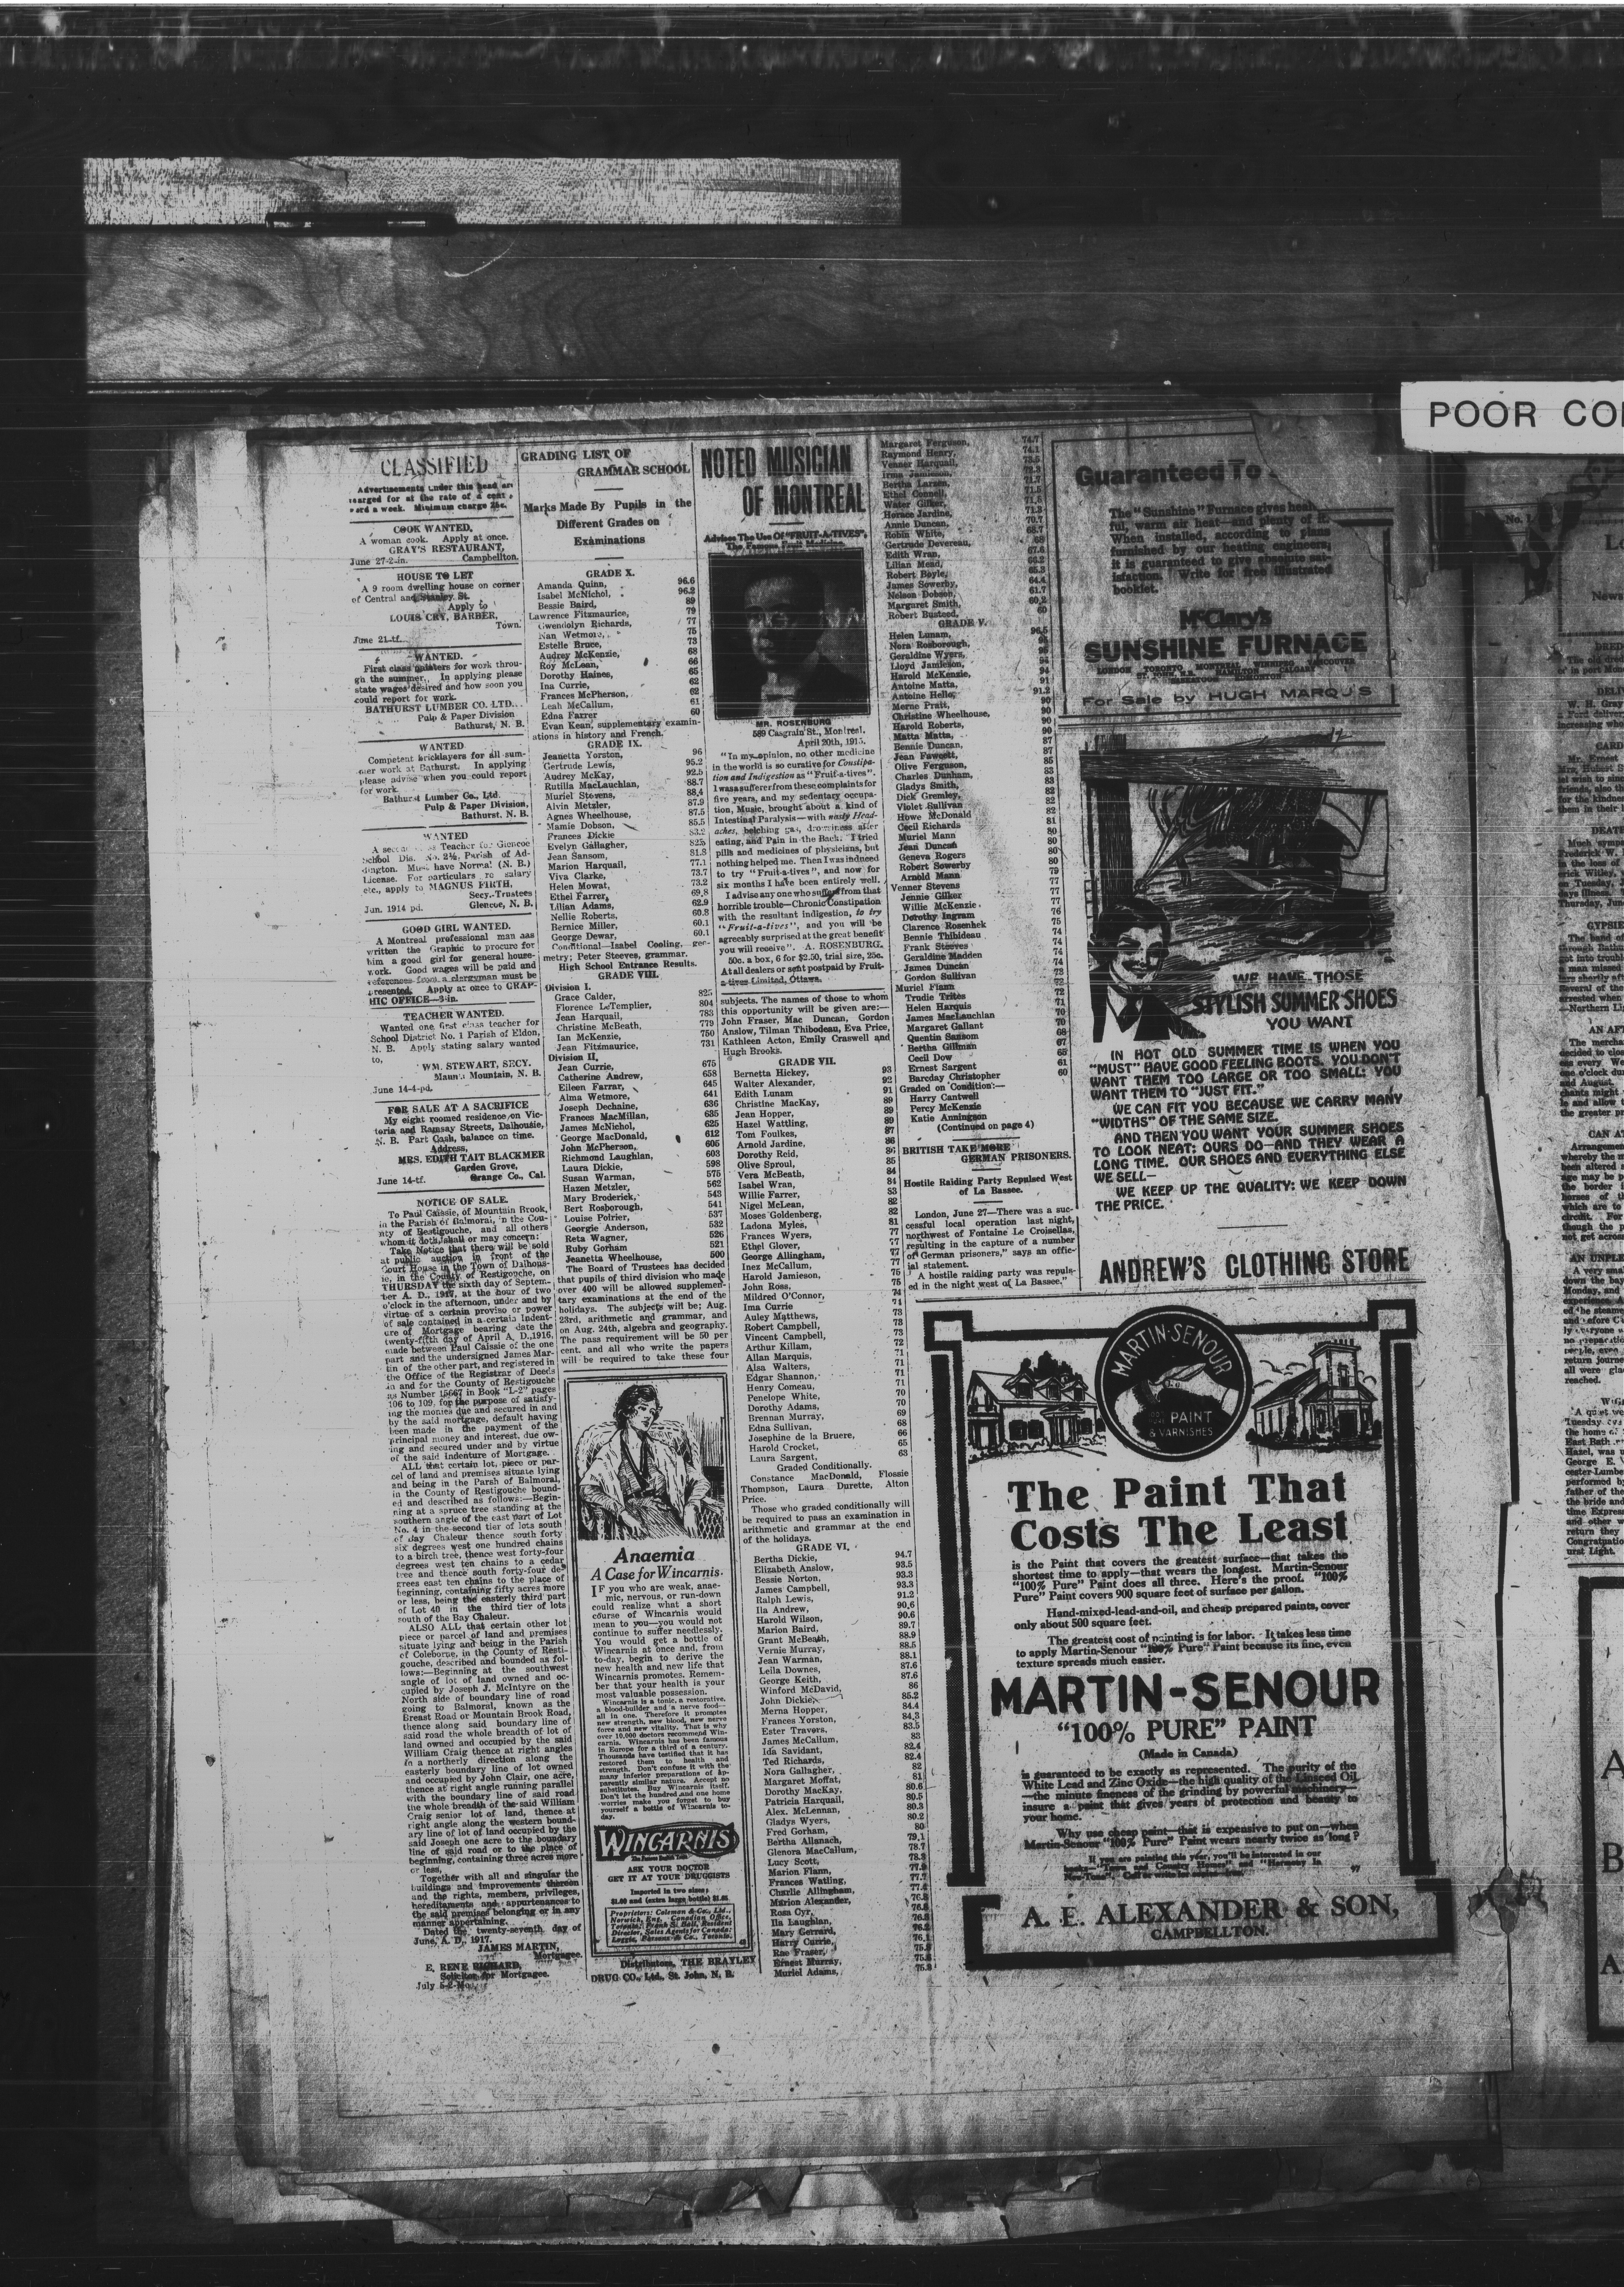 POOR CO
CLASSIFIED
Advertisements under this head are
charged for at the rate of a cent a
word a week. Minimum charge 25c.
COOK WANTED.
A woman cook. Apply at once.
GRAY'S RESTAURANT,
Campbellton.
June 27-2-in.
HOUSE TO LET
A 9 room dwelling house on corner
of Central and Stanley St.
Apply to
LOUIS CRY, BARBER,
Town.
June 21-tf.
WANTED.
First class painters for work throu-
gh the summer. In applying please
state wages desired and how soon you
could report for work.
BATHURST LUMBER CO. LTD.
Pulp & Paper Division
Bathurst, N. B.
WANTED
Competent bricklayers for all sum-
mer work at Bathurst. In applying
please advise when you could report
for work.
Bathurst Lumber Co., Ltd.
Pulp & Paper Division,
Bathurst. N. B.
WANTED
Teacher for Glencoe
School Dis. No. 2½, Parish of Ad-
dington. Must have Normal (N. B.)
License. For particulars re salary
etc., apply to MAGNUS FIRTH,
Secy.-Trustees
Glencoe, N. B.
Jun. 1914 pd.
GOOD GIRL WANTED.
A Montreal professional man has
written the Graphic to procure for
him a good girl for general house-
work. Good wages will be paid and
references from a clergyman must be
presented. Apply at once to GRAP-
HIC OFFICE—3-in.
TEACHER WANTED.
Wanted one first class teacher for
School District No. 1 Parish of Eldon,
N. B. Apply stating salary wanted
to,
WM. STEWART, SECY.
Mann's Mountain, N. B.
June 14-4-pd.
FOR SALE AT A SACRIFICE
My eight roomed residence on Vic-
toria and Ramsay Streets, Dalhousie,
N. B. Part Cash, balance on time.
Address,
MRS. EDITH TAIT BLACKMER
Garden Grove,
Orange Co., Cal.
June 14-tf.
NOTICE OF SALE.
To Paul Caissie, of Mountain Brook,
in the Parish of Balmoral, in the Cou-
nty of Restigouche, and all others
whom it doth, shall or may concern:
Take Notice that there will be sold
at public auction in front of the
Court House in the Town of Dalhous-
ie, in the County of Restigouche, on
THURSDAY the sixth day of Septem-
ber A. D., 1917, at the hour of two
o'clock in the afternoon, under and by
virtue of a certain proviso or power
of sale contained in a certain Indent-
ure of Mortgage bearing date the
twenty-fifth day of April A. D., 1916,
made between Paul Caissie of the one
part and the undersigned James Mar-
tin of the other part, and registered in
the Office of the Registrar of Deeds
in and for the County of Restigouche
as Number 15667 in Book "L-2" pages
106 to 109, for the purpose of satisfy-
ing the monies due and secured in and
by the said mortgage, default having
been made in the payment of the
principal money and interest, due ow-
ing and secured under and by virtue
of the said Indenture of Mortgage.
ALL that certain lot, piece or par-
cel of land and premises situate lying
and being in the Parsh of Balmoral,
in the County of Restigouche bound-
ed and described as follows:—Begin-
ning at a spruce tree standing at the
southern angle of the east part of Lot
No. 4 in the second tier of lots south
of day Chaleur thence south forty
six degrees west one hundred chains
to a birch tree, thence west forty-four
degrees west ten chains to a cedar
tree and thence south forty-four de-
grees east ten chains to the place of
beginning, containing fifty acres more
or less, being the easterly third part
of Lot 40 in the third tier of lots
south of the Bay Chaleur.
ALSO ALL that certain other lot
piece or parcel of land and premises
situate lying and being in the Parish
of Coleborne, in the County of Resti-
gouche, described and bounded as fol-
lows:—Beginning at the southwest
angle of lot of land owned and oc-
cupied by Joseph J. McIntyre on the
North side of boundary line of road
going to Balmoral, known as the
Breast Road or Mountain Brook Road,
thence along said boundary line of
said road the whole breadth of lot of
land owned and occupied by the said
William Craig thence at right angles
in a northerly direction along the
easterly boundary line of lot owned
and occupied by John Clair, one acre,
thence at right angle running parallel
with the boundary line of said road
the whole breadth of the said William
Craig senior lot of land, thence at
right angle along the western bound-
ary line of lot of land occupied by the
said Joseph one acre to the boundary
line of said road or to the place of
beginning, containing three acres more
or less,
Together with all and singular the
buildings and improvements thereon
and the rights, members, privileges,
hereditaments and appurtenances to
the said premises belonging or in any
manner appertaining.
Dated the twenty-seventh day of
June, A. D., 1917.
JAMES MARTIN,
Mortgagee.
E. RENE RICHARD,
Solicitor for Mortgagee.
July 5-2-Mo.
GRADING LIST OF
GRAMMAR SCHOOL
Marks Made By Pupils in the
Different Grades on
Examinations
GRADE X.
Amanda Quinn, 96.6
Isabel McNichol, 96.2
Bessie Baird, 89
Lawrence Fitzmaurice, 79
Gwendolyn Richards, 77
Nan Wetmore, 75
Estelle Bruce, 73
Audrey McKenzie, 68
Roy McLean, 66
Dorothy Haines, 65
Ina Currie, 62
Frances McPherson, 62
Leah McCallum, 61
Edna Farrer 60
Evan Kean, supplementary examin-
ations in history and French.
GRADE IX.
Jeanetta Yorston, 96
Gertrude Lewis, 95.2
Audrey McKay, 92.5
Rutilla MacLauchlan, 88.7
Muriel Stevens, 88.4
Alvin Metzler, 87.9
Agnes Wheelhouse, 87.5
Mamie Dobson, 85.5
Frances Dickie 83.2
Evelyn Gallagher, 825
Jean Sansom, 81.8
Marion Harquail, 77.1
Viva Clarke, 73.7
Helen Mowat, 73.2
Ethel Farrer, 69.8
Lilian Adams, 62.9
Nellie Roberts, 60.8
Bernice Miller, 60.1
George Dewar, 60.1
Conditional—Isabel Cooling, geo-
metry; Peter Steeves, grammar.
High School Entrance Results.
GRADE VIII.
Division I.
Grace Calder, 825
Florence LeTemplier, 804
Jean Harquail, 783
Christine McBeath, 779
Ian McKenzie, 750
Jean Fitzmaurice, 731
Division II.
Jean Currie, 675
Catherine Andrew, 658
Eileen Farrar, 645
Alma Wetmore, 641
Joseph Dechaine, 636
Frances MacMillan, 635
James McNichol, 625
George MacDonald, 612
John McPherson, 606
Richmond Laughlan, 603
Laura Dickie, 598
Susan Warman, 575
Hazen Metzler, 562
Mary Broderick, 543
Bert Rosborough, 541
Louise Poirier, 537
Georgie Anderson, 532
Reta Wagner, 526
Ruby Gorham 521
Jeanetta Wheelhouse, 500
The Board of Trustees has decided
that pupils of third division who made
over 400 will be allowed supplemen-
tary examinations at the end of the
holidays. The subjects will be; Aug.
23rd, arithmetic and grammar, and
on Aug. 24th, algebra and geography.
The pass requirement will be 50 per
cent. and all who write the papers
will be required to take these four
Anaemia
A Case for Wincarnis.
IF you who are weak, anae-
mic, nervous, or run-down
could realize what a short
course of Wincarnis would
mean to you—you would not
continue to suffer needlessly.
You would get a bottle of
Wincarnis at once and, from
to-day, begin to derive the
new health and new life that
Wincarnis promotes. Remem-
ber that your health is your
most valuable possession.
Wincarnis is a tonic, a restorative,
a blood-builder and a nerve food—
all in one. Therefore it promotes
new strength, new blood, new nerve
force and new vitality. That is why
over 10,000 doctors recommend Win-
carnis. Wincarnis has been famous
in Europe for a third of a century.
Thousands have testified that it has
restored them to health and
strength. Don't confuse it with the
many inferior preparations of ap-
parently similar nature. Accept no
substitutes. Buy Wincarnis itself.
Don't let the hundred and one home
worries make you forget to buy
yourself a bottle of Wincarnis to-
day.
WINCARNIS
ASK YOUR DOCTOR
GET IT AT YOUR DRUGGISTS
Imported in two sizes:
Proprietors: Coleman & Co., Ltd.,
Norwich, Eng. Canadian Office,
Toronto. Frank S. Ball, Resident
Director. Sales Agents for Canada:
Loggie, Parsons & Co., Toronto.
Distributors, THE BRAYLEY
DRUG CO., Ltd., St. John, N. B.
NOTED MUSICIAN
OF MONTREAL
Advises The Use Of "FRUIT-A-TIVES",
The Famous Fruit Medicine.
MR. ROSENBURG
589 Casgrain St., Montreal.
April 20th, 1915.
"In my opinion, no other medicine
in the world is so curative for Constipa-
tion and Indigestion as "Fruit-a-tives".
I was a sufferer from these complaints for
five years, and my sedentary occupa-
tion, Music, brought about a kind of
Intestinal Paralysis—with nasty Head-
aches, belching gas, drowsiness after
eating, and Pain in the Back. I tried
pills and medicines of physicians, but
nothing helped me. Then I was induced
to try "Fruit-a-tives", and now for
six months I have been entirely well.
I advise any one who suffers from that
horrible trouble—Chronic Constipation
with the resultant indigestion, to try
"Fruit-a-tives", and you will be
agreeably surprised at the great benefit
you will receive". A. ROSENBURG.
50c. a box, 6 for $2.50, trial size, 25c.
At all dealers or sent postpaid by Fruit-
a-tives Limited, Ottawa.
subjects. The names of those to whom
this opportunity will be given are:—
John Fraser, Mac Duncan, Gordon
Anslow, Tilman Thibodeau, Eva Price,
Kathleen Acton, Emily Craswell and
Hugh Brooks.
GRADE VII.
Bernetta Hickey, 93
Walter Alexander, 92
Edith Lunam 91
Christine MacKay, 89
Jean Hopper, 89
Hazel Wattling, 89
Tom Foulkes, 87
Arnold Jardine, 86
Dorothy Reid, 86
Olive Sproul, 85
Vera McBeath, 84
Isabel Wran, 84
Willie Farrer, 83
Nigel McLean, 82
Moses Goldenberg, 82
Ladona Myles, 81
Frances Wyers, 77
Ethel Glover, 77
George Allingham, 77
Inez McCallum, 77
Harold Jamieson, 75
John Ross, 75
Mildred O'Connor, 74
Ima Currie 74
Auley Matthews, 73
Robert Campbell, 73
Vincent Campbell, 73
Arthur Killam, 72
Allan Marquis, 71
Alsa Walters, 71
Edgar Shannon, 71
Henry Comeau, 71
Penelope White, 70
Dorothy Adams, 70
Brennan Murray, 69
Edna Sullivan, 68
Josephine de la Bruere, 66
Harold Crocket, 65
Laura Sargent, 63
Graded Conditionally.
Constance MacDonald, Flossie
Thompson, Laura Durette, Alton
Price.
Those who graded conditionally will
be required to pass an examination in
arithmetic and grammar at the end
of the holidays.
GRADE VI.
Bertha Dickie, 94.7
Elizabeth Anslow, 93.5
Bessie Norton, 93.3
James Campbell, 93.3
Ralph Lewis, 91.2
Ila Andrew, 90.6
Harold Wilson, 90.6
Marion Baird, 89.7
Grant McBeath, 88.9
Vernie Murray, 88.5
Jean Warman, 88.1
Leila Downes, 87.6
George Keith, 87.6
Winford McDavid, 86
John Dickie, 85.2
Merna Hopper, 84.4
Frances Yorston, 84.3
Ester Travers, 83.5
James McCallum, 83
Ida Savidant, 82.4
Ted Richards, 82.4
Nora Gallagher, 82
Margaret Moffat, 81
Dorothy MacKay, 80.6
Patricia Harquail, 80.5
Alex. McLennan, 80.3
Gladys Wyers, 80.2
Fred Gorham, 80
Bertha Allanach, 79.1
Glenora MacCallum, 78.7
Lucy Scott, 78.3
Marion Flann, 77.9
Frances Watling, 77.7
Charlie Allingham,
Marion Alexander,
Rosa Cyr,
Ila Laughlan,
Mary Gerrard,
Harry Currie,
Rae Fraser,
Ernest Murray,
Muriel Adams,
Margaret Ferguson, 74.7
Raymond Henry, 74.1
Venner Harquail, 73.5
Irma Jamieson,
Bertha Larsen, 71.7
Ethel Connell, 71.5
Water Gilker, 71.5
Horace Jardine, 71.3
Annie Duncan, 70.7
Robin White, 68.7
Gertrude Devereau, 68
Edith Wran, 67.6
Lilian Mead, 66.2
Robert Boyle, 65.3
James Sowerby, 64.4
Nelson Dobson, 61.7
Margaret Smith, 60.2
Robert Busteed, 60
GRADE V.
Helen Lunam, 96.5
Nora Rosborough, 96
Geraldine Wyers, 95
Lloyd Jamieson, 94
Harold McKenzie, 94
Antoine Matta, 91
Antoine Helle, 91.2
Merne Pratt, 90
Christine Wheelhouse, 90
Harold Roberts, 90
Matta Matta, 90
Bennie Duncan, 87
Jean Fawcett, 87
Olive Ferguson, 85
Charles Dunham, 83
Gladys Smith, 83
Dick Gremley, 82
Violet Sullivan 82
Howe McDonald 82
Cecil Richards 81
Muriel Mann 80
Jean Duncan 80
Geneva Rogers 80
Robert Sowerby 80
Arnold Mann 79
Venner Stevens 77
Jennie Gilker 77
Willie McKenzie 77
Dorothy Ingram 76
Clarence Rosenhek 75
Bennie Thibideau 74
Frank Steeves 74
Geraldine Madden 74
James Duncan 74
Gordon Sullivan 73
Muriel Flann 72
Trudie Trites 72
Helen Harquis 71
James MacLauchlan 70
Margaret Gallant 70
Quentin Sansom 68
Bertha Gillman 67
Cecil Dow 65
Ernest Sargent 61
Barcday Christopher 60
Graded on Condition:—
Harry Cantwell
Percy McKenzie
Katie Anningson
(Continued on page 4)
BRITISH TAKE MORE
GERMAN PRISONERS.
Hostile Raiding Party Repulsed West
of La Bassee.
London, June 27—There was a suc-
cessful local operation last night,
northwest of Fontaine Le Croisellas,
resulting in the capture of a number
of German prisoners," says an offic-
ial statement.
"A hostile raiding party was repuls-
ed in the night west of La Bassee."
Guaranteed To
The "Sunshine" Furnace gives heal
ful, warm air heat—and plenty of it.
When installed, according to plans
furnished by our heating engineers,
it is guaranteed to give absolute sat-
isfaction. Write for free illustrated
booklet.
McClary's
SUNSHINE FURNACE
LONDON TORONTO MONTREAL WINNIPEG VANCOUVER
ST. JOHN, N.B. HAMILTON CALGARY
SASKATOON EDMONTON
For Sale by HUGH MARQUIS
WE HAVE THOSE
STYLISH SUMMER SHOES
YOU WANT
IN HOT OLD SUMMER TIME IS WHEN YOU
"MUST" HAVE GOOD FEELING BOOTS. YOU DON'T
WANT THEM TOO LARGE OR TOO SMALL: YOU
WANT THEM TO "JUST FIT."
WE CAN FIT YOU BECAUSE WE CARRY MANY
"WIDTHS" OF THE SAME SIZE.
AND THEN YOU WANT YOUR SUMMER SHOES
TO LOOK NEAT: OURS DO—AND THEY WEAR A
LONG TIME. OUR SHOES AND EVERYTHING ELSE
WE SELL—
WE KEEP UP THE QUALITY: WE KEEP DOWN
THE PRICE.
ANDREW'S CLOTHING STORE
MARTIN-SENOUR
100% PURE PAINT
& VARNISHES
The Paint That
Costs The Least
is the Paint that covers the greatest surface—that takes the
shortest time to apply—that wears the longest. Martin-Senour
"100% Pure" Paint does all three. Here's the proof. "100%
Pure" Paint covers 900 square feet of surface per gallon.
Hand-mixed-lead-and-oil, and cheap prepared paints, cover
only about 500 square feet.
The greatest cost of painting is for labor. It takes less time
to apply Martin-Senour "100% Pure" Paint because its fine, even
texture spreads much easier.
MARTIN-SENOUR
"100% PURE" PAINT
(Made in Canada)
is guaranteed to be exactly as represented. The purity of the
White Lead and Zinc Oxide—the high quality of the Linseed Oil,
—the minute fineness of the grinding by powerful machinery—
insure a paint that gives years of protection and beauty to
your home.
Why use cheap paint—that is expensive to put on—when
Martin-Senour "100% Pure" Paint wears nearly twice as long?
If you are painting this year, you'll be interested in our
books—"Town and Country Homes" and "Harmony In
Neu-Tone". Call or write for copies—free.
A. E. ALEXANDER & SON,
CAMPBELLTON.